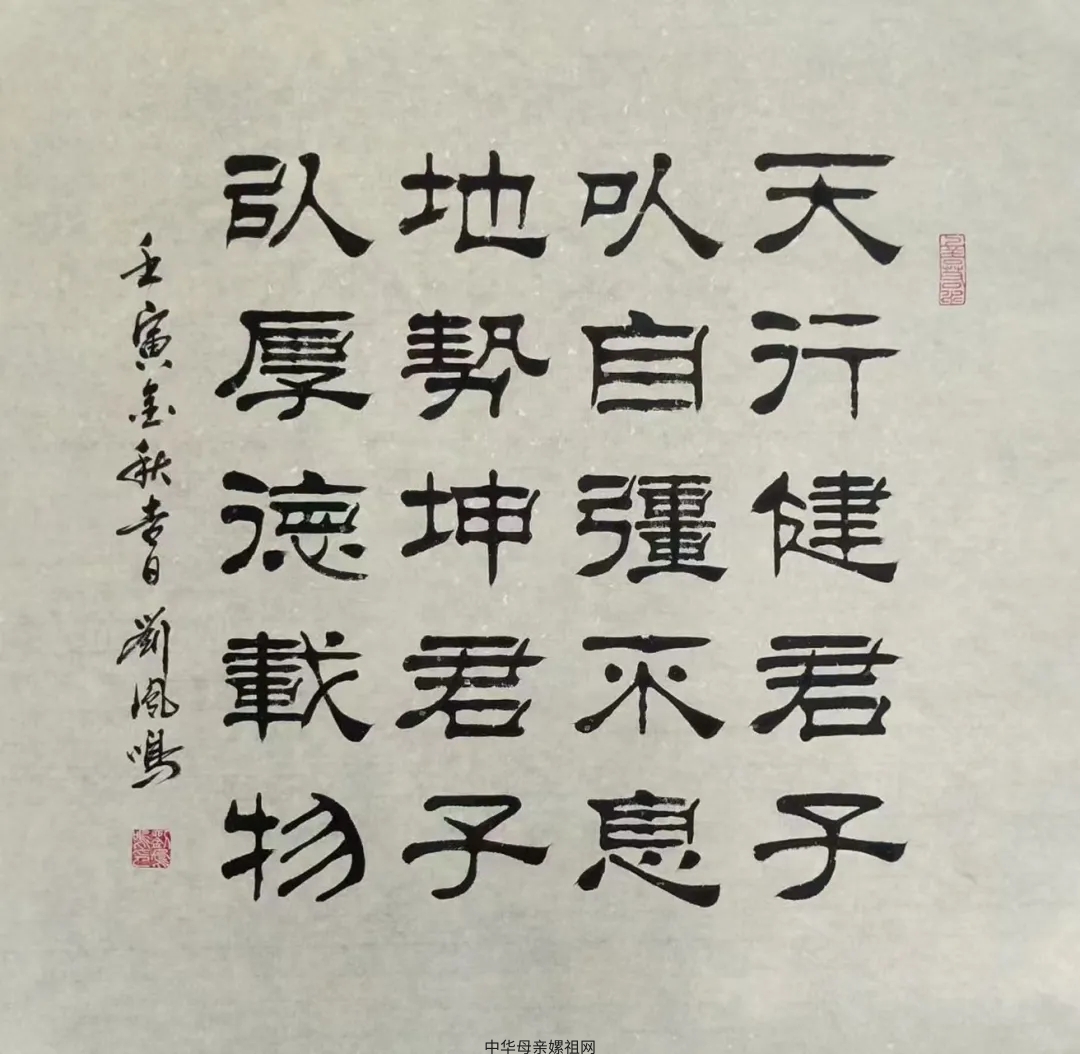 天行健君子
以自彊不息
地勢坤君子
以厚德載物
壬寅金秋吉日 劉鳳鳴
中华母亲嫘祖网